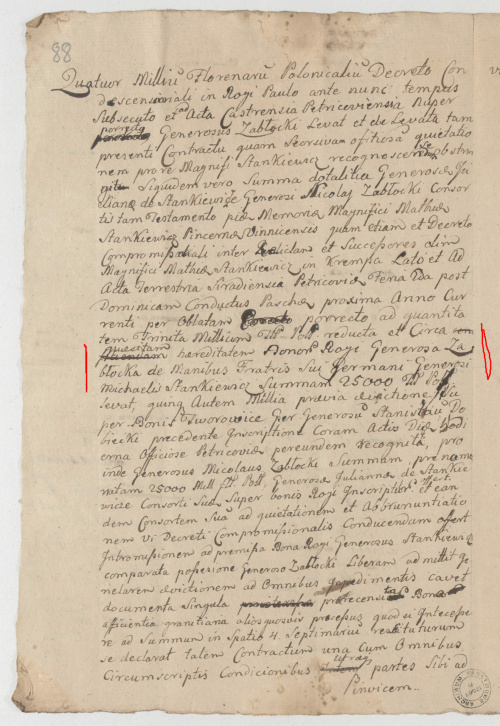 88
Quatuor Milliū Florenarū Polonicaliū Decreto Con
descensoriali in Rogi Paulo ante nunc tempus
Subsecuto et Acta Castrensia Petricoviensia Nuper
porrecto Generosus Zabłocki Levat et de Levata tam
presenti Contractu quam Seorsivam officiosa quietatio
nem pro re Magnifi Stankiewicz recognoscere se obstrin
Siquidem vero Summa dotalitia Generosæ Ju
lianæ de Stankiewicze Generosi Nicolaj Zabłocki Consor
tis tam Testamento piæ Memoriæ Magnifici Mathiæ
Stankiewicz Pincernæ Vinnicensis quam etiam et Decreto
Compromissariali inter et Successores olim
Magnifici Mathiæ Stankiewicz in Krempa Lato et Ad
Acta Terrestria Siradiensia Petricoviæ Feria IIda post
Dominicam Conductus Paschæ proxima Anno Cur
renti per Oblatam porrecto ad quantita
tem Triginta Millium flł Poll reducta et Circa
hareditatem Bonor Rogi Generosa Za
błocka de Manibus Fratris Sui Germani Generosi
Michaelis Stankiewicz Summam 25000 flł Poll
levat, quinq Autem Millia prævia evictione Su
per Bonis Tworowice per Generosū Stanisłaū Do
biecki precedente Inscriptione Coram Actis Die Hodi
erna Officiose Petricoviæ pereundem Recognita, pro
inde Generosus Nicolaus Zabłocki Summam prenomi
natam 25000 Mill flł Poll Generosæ Juliannæ de Stankie
wicze Consorti Suæ Super bonis Rogi Inscriptur. est. ean
dem Consortem Suā ad quietationem et Abrenuntiatio
nem vi Decreti Compromissionalis Conducendam offert
Intromissionem ad premissa Bona Rogi Generosus Stankiewicz
comparata possesione Generoso Zabłocki Liberam admittit ge
neralem evictionem ab Omnibus Impedimentis cavet
documenta Singula Bona
afficientia granitiana aliosquosvis processus quod si Intercepe
re ad Summum in Spatio 4. Septimanarū restituturum
se declarat talem Contractum una Cum Omnibus
Circumscriptis Condicionibus utræ partes Sibi ad
invicem